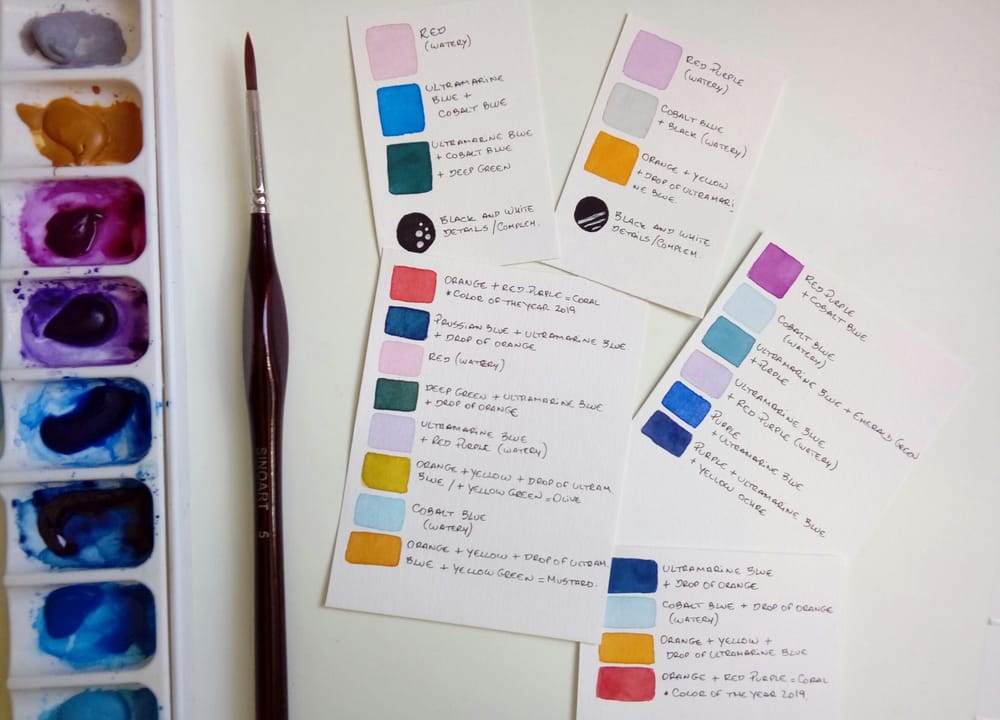 RED
(WATERY)
ULTRAMARINE
BLUE +
COBALT BLUE
ULTRAMARINE BLUE
+ COBALT BLUE
+ DEEP GREEN
BLACK AND WHITE
DETAILS/COMPLEM.
RED PURPLE
(WATERY)
COBALT BLUE
+ BLACK (WATERY)
ORANGE + YELLOW
+ DROP OF ULTRAMARI
NE BLUE.
BLACK AND WHITE
DETAILS/COMPLEM.
ORANGE + RED PURPLE = CORAL
* COLOR OF THE YEAR 2019
PRUSSIAN BLUE + ULTRAMARINE BLUE
+ DROP OF ORANGE
RED (WATERY)
DEEP GREEN + ULTRAMARINE BLUE
+ DROP OF ORANGE
ULTRAMARINE BLUE
+ RED PURPLE (WATERY)
ORANGE + YELLOW + DROP OF ULTRAM.
BLUE / + YELLOW GREEN = OLIVE
COBALT BLUE
(WATERY)
ORANGE + YELLOW + DROP OF ULTRAM.
BLUE + YELLOW GREEN = MUSTARD.
RED PURPLE
+ COBALT BLUE
COBALT BLUE
(WATERY)
ULTRAMARINE BLUE + EMERALD GREEN
+ PURPLE
ULTRAMARINE BLUE
+ RED PURPLE (WATERY)
PURPLE
+ ULTRAMARINE BLUE
PURPLE + ULTRAMARINE BLUE
+ YELLOW OCHRE
ULTRAMARINE BLUE
+ DROP OF ORANGE
COBALT BLUE + DROP OF ORANGE
(WATERY)
ORANGE + YELLOW +
DROP OF ULTRAMARINE BLUE
ORANGE + RED PURPLE = CORAL
* COLOR OF THE YEAR 2019.
SINOART 5